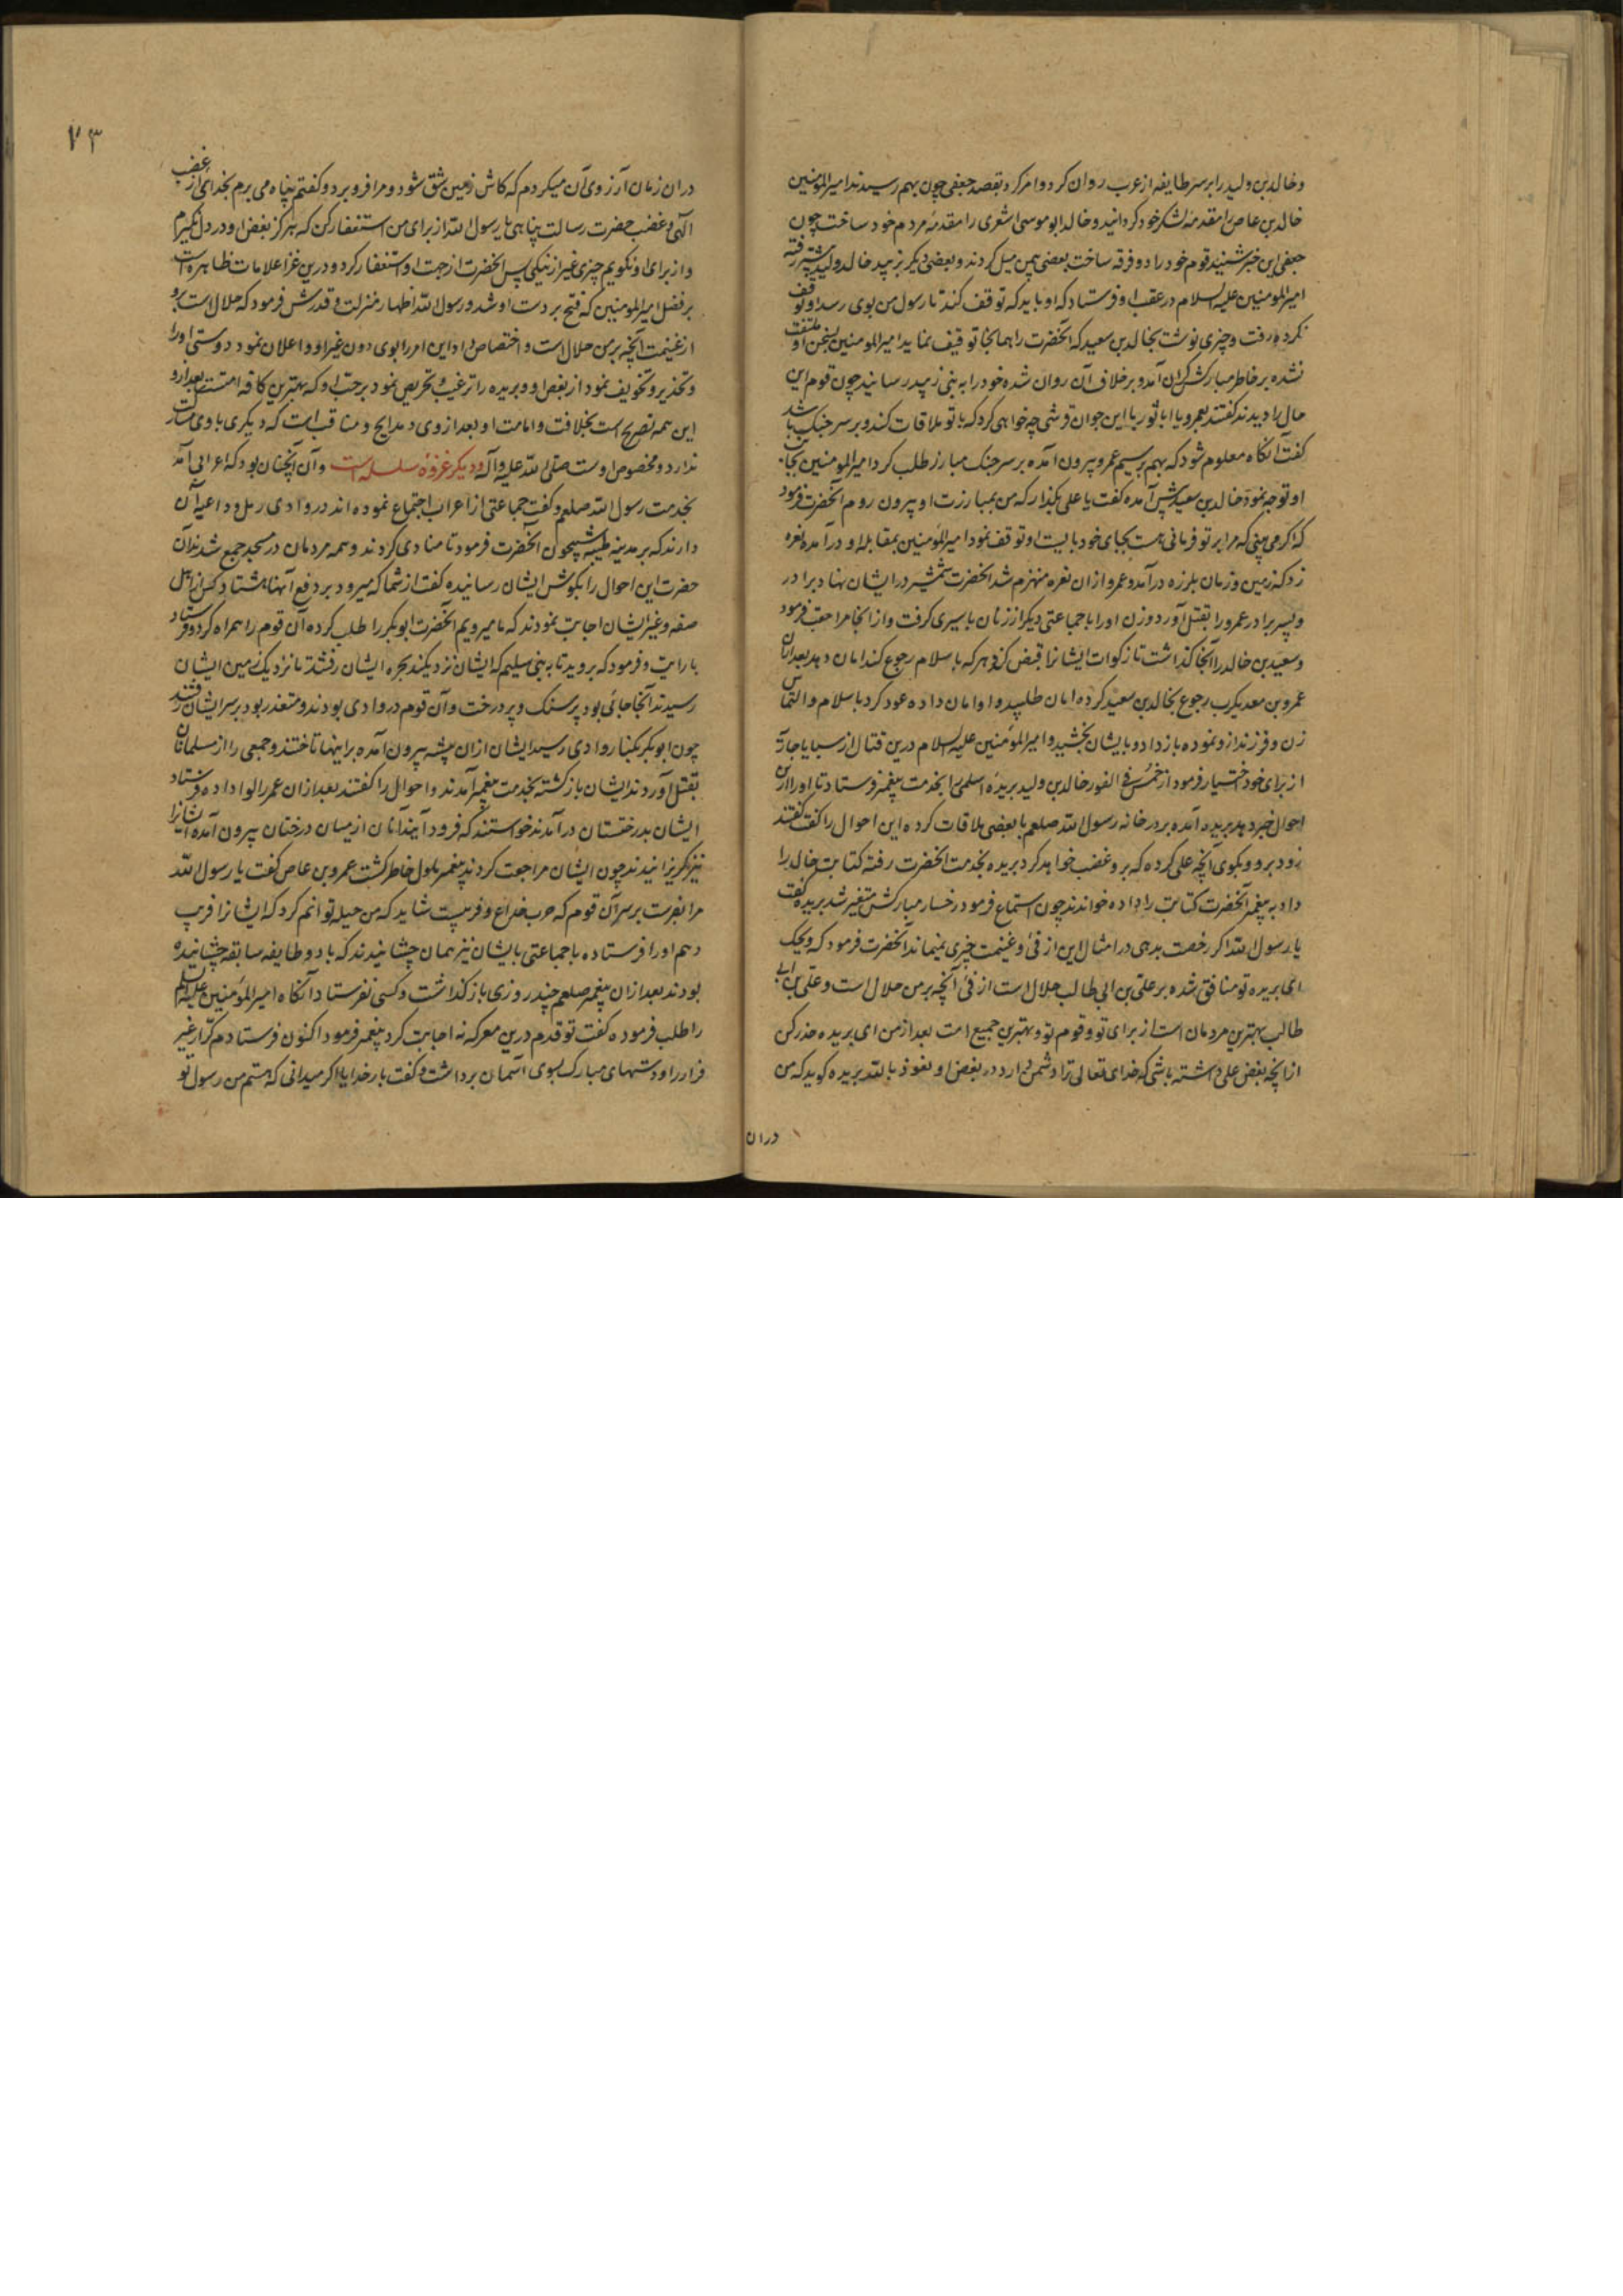 و خالد بن ولید را بر سر طایفه از عرب روان کرد و امر کرد بقصد جعفی چون بهم رسیدند امیرالمؤمنین
خالد بن عاص را مقدمه لشکر خود کردانید و خالد ابو موسی اشعری را مقدمهٔ مردم خود ساخت چون
جعفی این خبر شنید قوم خود را دو فرقه ساخت بعضی بیمن میل کردند و بعضی دیگر بزبید خالد ولید پیشتر رفته
امیرالمومنین علیه السلام در عقب او فرستاد که او باید که توقف کند تا رسول من بوی رسد او توقف
نکرده رفت و چیزی نوشت بخالد بن سعید که آنحضرت را همانجا توقیف نماید امیرالمومنین بسخن او ملتفت
نشده بر خاطر مبارکش کران آمد و بر خلاف آن روان شده خود را به بنی زبید رسانید چون قوم این
حال را دیدند کفتند بعمرو یا ابا ثور با این جوان قرشی چه خواهی کرد که با تو ملاقات کند و بر سر جنک باشد
کفت آنکاه معلوم شود که بهم برسیم عمرو بیرون آمده بر سر جنک مبارز طلب کرد امیرالمومنین بجانب
او توجه نمود خالد بن سعید پیش آمده کفت یا علی بکذار که من بمبارزت او بیرون روم آنحضرت فرمود
که اکر می بینی که مرا بر تو فرمانی هست بجای خود بایست او توقف نمود امیرالمؤمنین بمقابله او در آمده نعره
زد که زمین و زمان بلرزه در آمد و عمرو از ان نعره منهزم شد آنحضرت شمشیر در ایشان نهاد برادر
و پسر برادر عمرو را بقتل آورد و زن او را با جماعتی دیکر از زنان باسیری کرفت و از انجا مراجعت فرمود
و سعید بن خالد را آنجا کذاشت تا زکوات ایشانرا قبض کند و هر که باسلام رجوع کند امان دهد بعد ازان
عمرو بن معدیکرب رجوع بخالد بن سعید کرده امان طلبید و او امان داده عود کرد باسلام و التماس
زن و فرزند از و نموده باز داد و بایشان بخشید و امیرالمؤمنین علیه السلام درین قتال از سبایا جاریه
از برای خود اختیار فرمود از خمس فی الفور خالد بن ولید بریدهٔ اسلمی را بخدمت پیغمبر فرستاد تا او را از این
احوال خبر دهد بریده آمده بر در خانه رسول الله صلعم با بعضی ملاقات کرده این احوال را کفت کفتند
زود برو و بکوی آنچه علی کرده که برو غضب خواهد کرد بریده بخدمت آنحضرت رفته کتابت خالد را
داد به پیغمبر آنحضرت کتابت را داده خواندند چون استماع فرمود رخسار مبارکش متغیر شد بریده کفت
یا رسول الله اکر رخصت بدهی در امثال این از فئ و غنیمت خیری نمیماند آنحضرت فرمود که ویحک
ای بریده تو منافق شده بر علی بن ابی طالب حلال است از فئ آنچه بر من حلال است و علی بن ابی
طالب بهترین مردمان است از برای تو و قوم تو و بهترین جمیع امت بعد از من ای بریده حذر کن
از انچه بغض علی داشته باشی که خدای تعالی ترا دشمن دارد در بغض او نعوذ بالله بریده کوید که من
دران
۷۳
دران زمان آرزوی آن میکردم که کاش زمین شق شود و مرا فرو برد و کفتم پناه می برم بخدای از غضب
الهی و غضب حضرت رسالت پناهی یا رسول الله از برای من استغفار کن که هرکز بغض او در دل نکیرم
و از برای او نکویم چیزی غیر از نیکی پس آنحضرت از جهت او استغفار کرد و درین غزا علامات ظاهره است
بر فضل امیرالمومنین که فتح بر دست او شد و رسول الله اظهار منزلت و قدرش فرمود که حلال است برو
از غنیمت آنچه بر من حلال است و اختصاص داد این امر را بوی دون غیر او و اعلان نمود دوستی او را
و تحذیر و تخویف نمود از بغض او و بریده را ترغیب و تحریص نمود بر حب او که بهترین کافه امتست بعد ازو
این همه تصریح است بخلافت و امامت او بعد از وی و مدایح و مناقب است که دیکری با وی مشارکت
ندارد و مخصوص اوست صلی الله علیه و آله و دیکر غزوهٔ سلسله است و آن آنچنان بود که اعرابی آمد
بخدمت رسول الله صلعم و کفت جماعتی از اعراب اجتماع نموده اند در وادی رمل و داعیه آن
دارند که بر مدینه طیبه شبیخون آنحضرت فرمود تا منادی کردند و همه مردمان در مسجد جمع شدند آن
حضرت این احوال را بکوش ایشان رسانیده کفت از شما که میرود بر دفع آنها هشتاد کس از اهل
صفه و غیر ایشان اجابت نمودند که ما میرویم آنحضرت ابوبکر را طلب کرده آن قوم را همراه کرد و فرستاد
با رایت و فرمود که بروید تا به بنی سلیم که ایشان نزدیکند بحره ایشان رفتند تا نزدیک زمین ایشان
رسیدند آنجا جائی بود پر سنک و پر درخت و آن قوم در وادی بودند و متعذر بود بر سر ایشان رفتند
چون ابوبکر بکنار وادی رسید ایشان ازان بیشه بیرون آمده بر اینها تاختند و جمعی را از مسلمانان
بقتل آوردند ایشان باز کشته بخدمت پیغمبر آمدند و احوال را کفتند بعد ازان عمر را لوا داده فرستاد
ایشان بدرختستان در آمدند خواستند که فرود آیند آنان از میان درختان بیرون آمده ایشانرا
نیز کریزانیدند چون ایشان مراجعت کردند پیغمبر ملول خاطر کشت عمرو بن عاص کفت یا رسول الله
مرا بفرست بر سر آن قوم که حرب خداع و فریبست شاید که من حیله توانم کرد که ایشانرا فریب
دهم او را فرستاده با جماعتی بایشان نیز همان چشانیدند که با دو طایفه سابقه چشانیده
بودند بعد ازان پیغمبر صلعم چند روزی باز کذاشت و کسی نفرستاد آنکاه امیرالمؤمنین علیه السلام
را طلب فرموده کفت تو قدم درین معرکه نه اجابت کرد پیغمبر فرمود اکنون فرستادم کرار غیر
فرار را و دستهای مبارک بسوی آسمان برداشت و کفت بار خدایا اکر میدانی که هستم من رسول تو